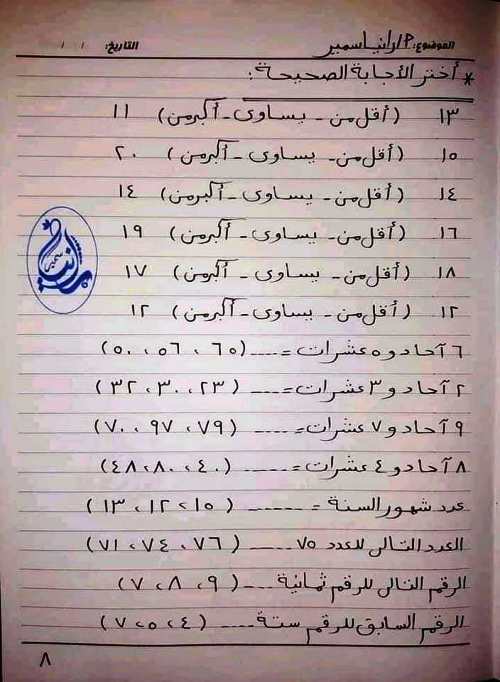 الموضوع: م/ رانيا سمير التاريخ: / /
* أختر الأجابة الصحيحة:
١٣ (أقل من - يساوى - أكبر من) ١١
١٥ (أقل من - يساوى - أكبر من) ٢٠
١٤ (أقل من - يساوى - أكبر من) ١٤
١٦ (أقل من - يساوى - أكبر من) ١٩
١٨ (أقل من - يساوى - أكبر من) ١٧
١٢ (أقل من - يساوى - أكبر من) ١٢
٦ آحاد و ٥ عشرات = .... (٦٥ ، ٥٦ ، ٥٠)
٢ آحاد و ٣ عشرات = .... (٢٣ ، ٣٠ ، ٣٢)
٩ آحاد و ٧ عشرات = .... (٧٩ ، ٩٧ ، ٧٠)
٨ آحاد و ٤ عشرات = .... (٤٠ ، ٨٠ ، ٤٨)
عدد شهور السنة = ...... (١٥ ، ١٢ ، ١٣)
العدد التالى للعدد ٧٥ ..... (٧٦ ، ٧٤ ، ٧١)
الرقم التالى للرقم ثمانية .... (٩ ، ٨ ، ٧)
الرقم السابق للرقم ستة .... (٤ ، ٥ ، ٧)
٨